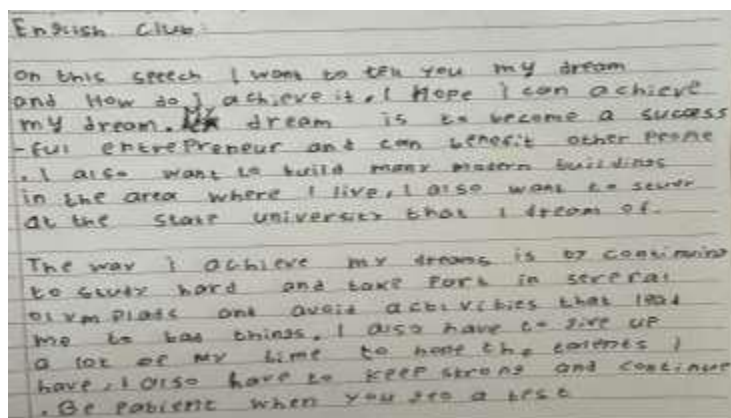 English Club:
On this speech I want to tell you my dream
and How do I achieve it. I Hope I can achieve
my dream. dream is to become a success
-ful entrepreneur and can benefit other People
. I also want to build many modern buildings
in the area where I live, I also want to study
at the state university that I dream of.
The way I achieve my dreams is by continuing
to study hard and take Part in several
olympiads and avoid activities that lead
me to bad things. I also have to give up
a lot of my time to hone the talents I
have, I also have to keep strong and continue
. Be patient when you